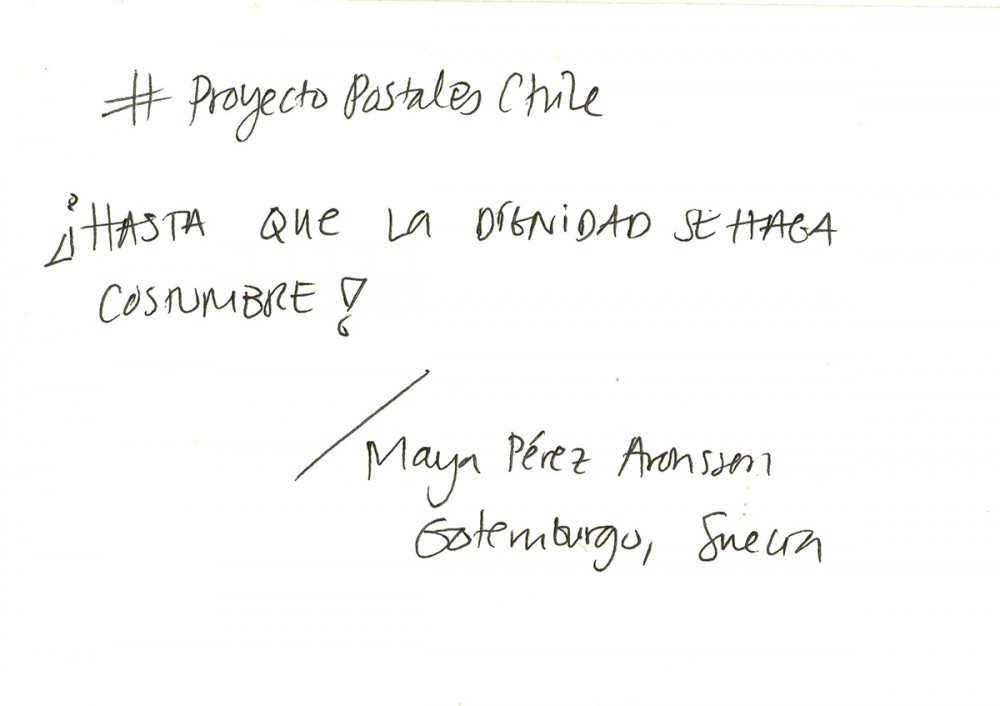 # Proyecto Postales Chile
¡HASTA QUE LA DIGNIDAD SE HAGA
COSTUMBRE!
/Maya Pérez Aronsson
Gotemburgo, Suecia